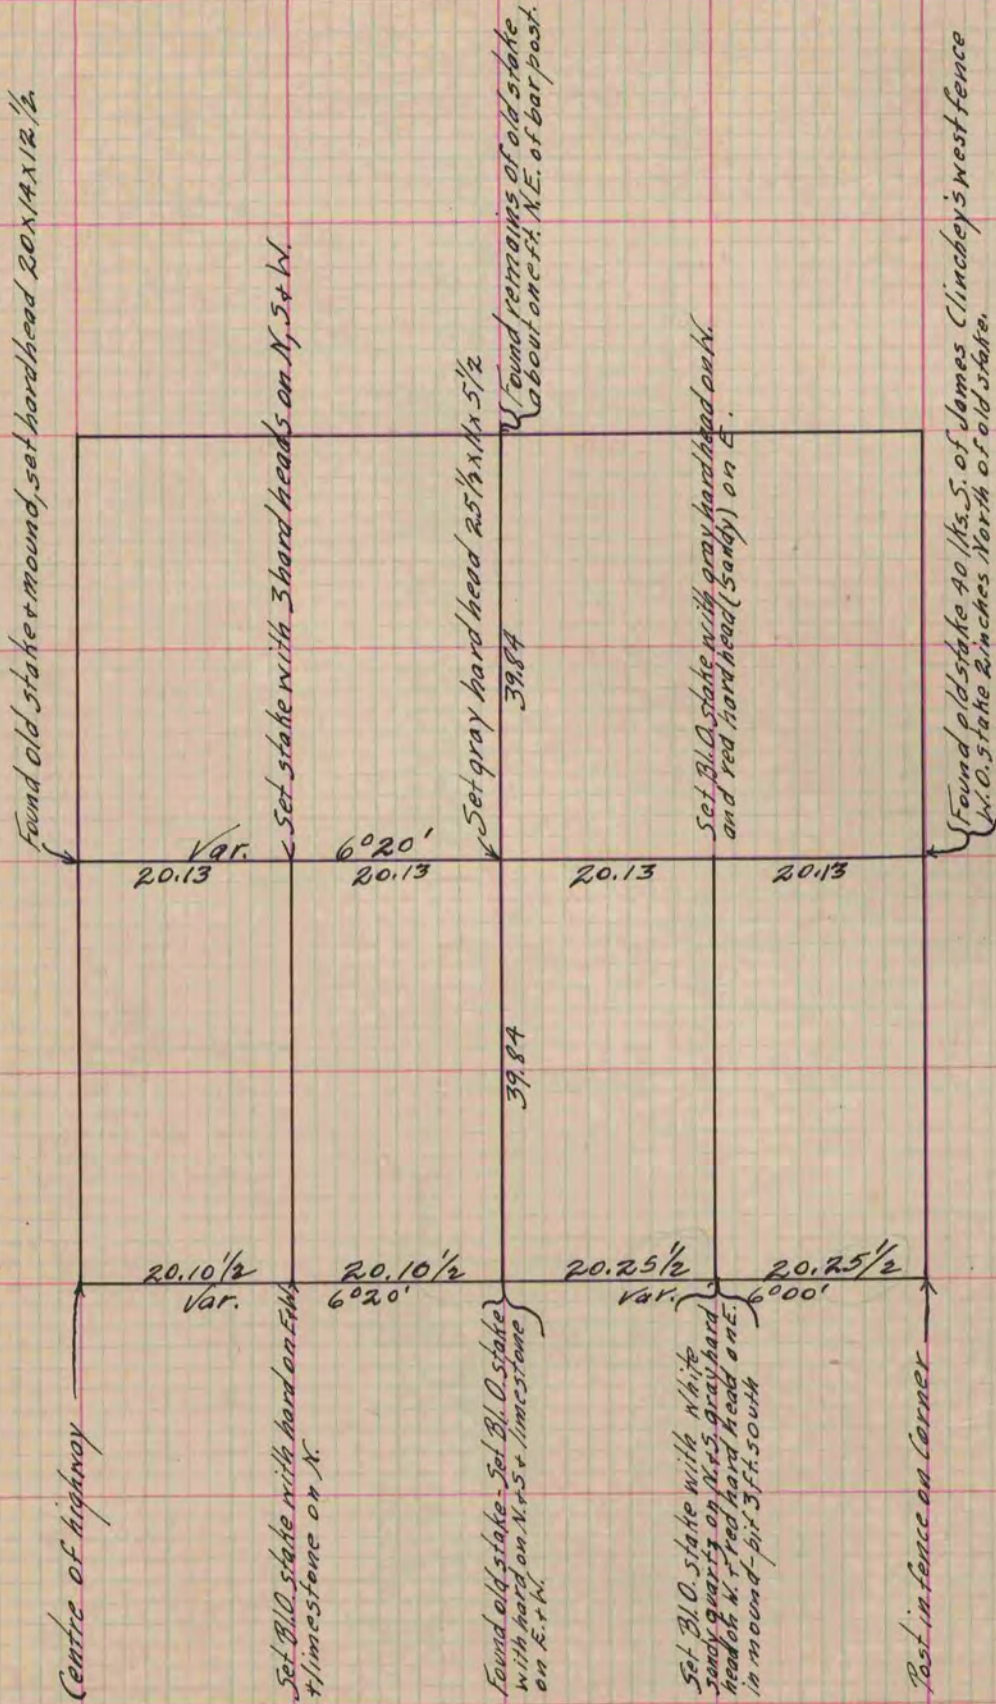 Found old stake + mound, set hardhead 20x14x12½
Set stake with 3 hard heads on N, S + W.
Found remains of old stake
about one ft. N.E. of bar post.
Set gray hard head 25½x11x5½
39.84
Set Bl. O. stake with gray hardhead on W.
and red hardhead (sandy) on E.
Found old stake 40 lks. S. of James Clinchey's west fence
W.O. stake 2 inches North of old stake.
Var. 6°20'
20.13 20.13 20.13 20.13
39.84
20.10½ 20.10½ 20.25½ 20.25½
Var. 6°20' Var. 6°00'
Centre of highway
Set Bl. O. stake with hard on E+W
+ limestone on N.
Found old stake - Set Bl. O. stake
with hard on N.+S + limestone
on E.+W.
Set Bl. O. stake with White
sandy quartz on N.+S. gray hard
head on W. + red hard head on E.
in mound - pit 3 ft. south
Post in fence on Corner